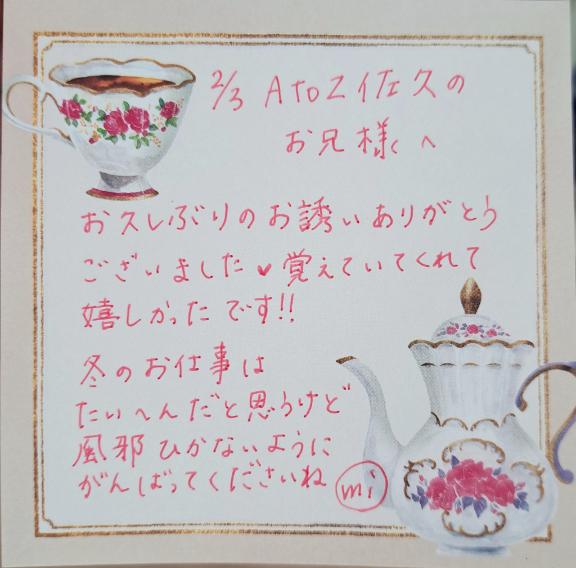 2/3 AtoZ佐久の
お兄様へ
お久しぶりのお誘いありがとう
ございました♥覚えていてくれて
嬉しかったです!!
冬のお仕事は
たいへんだと思うけど
風邪ひかないように
がんばってくださいね mi